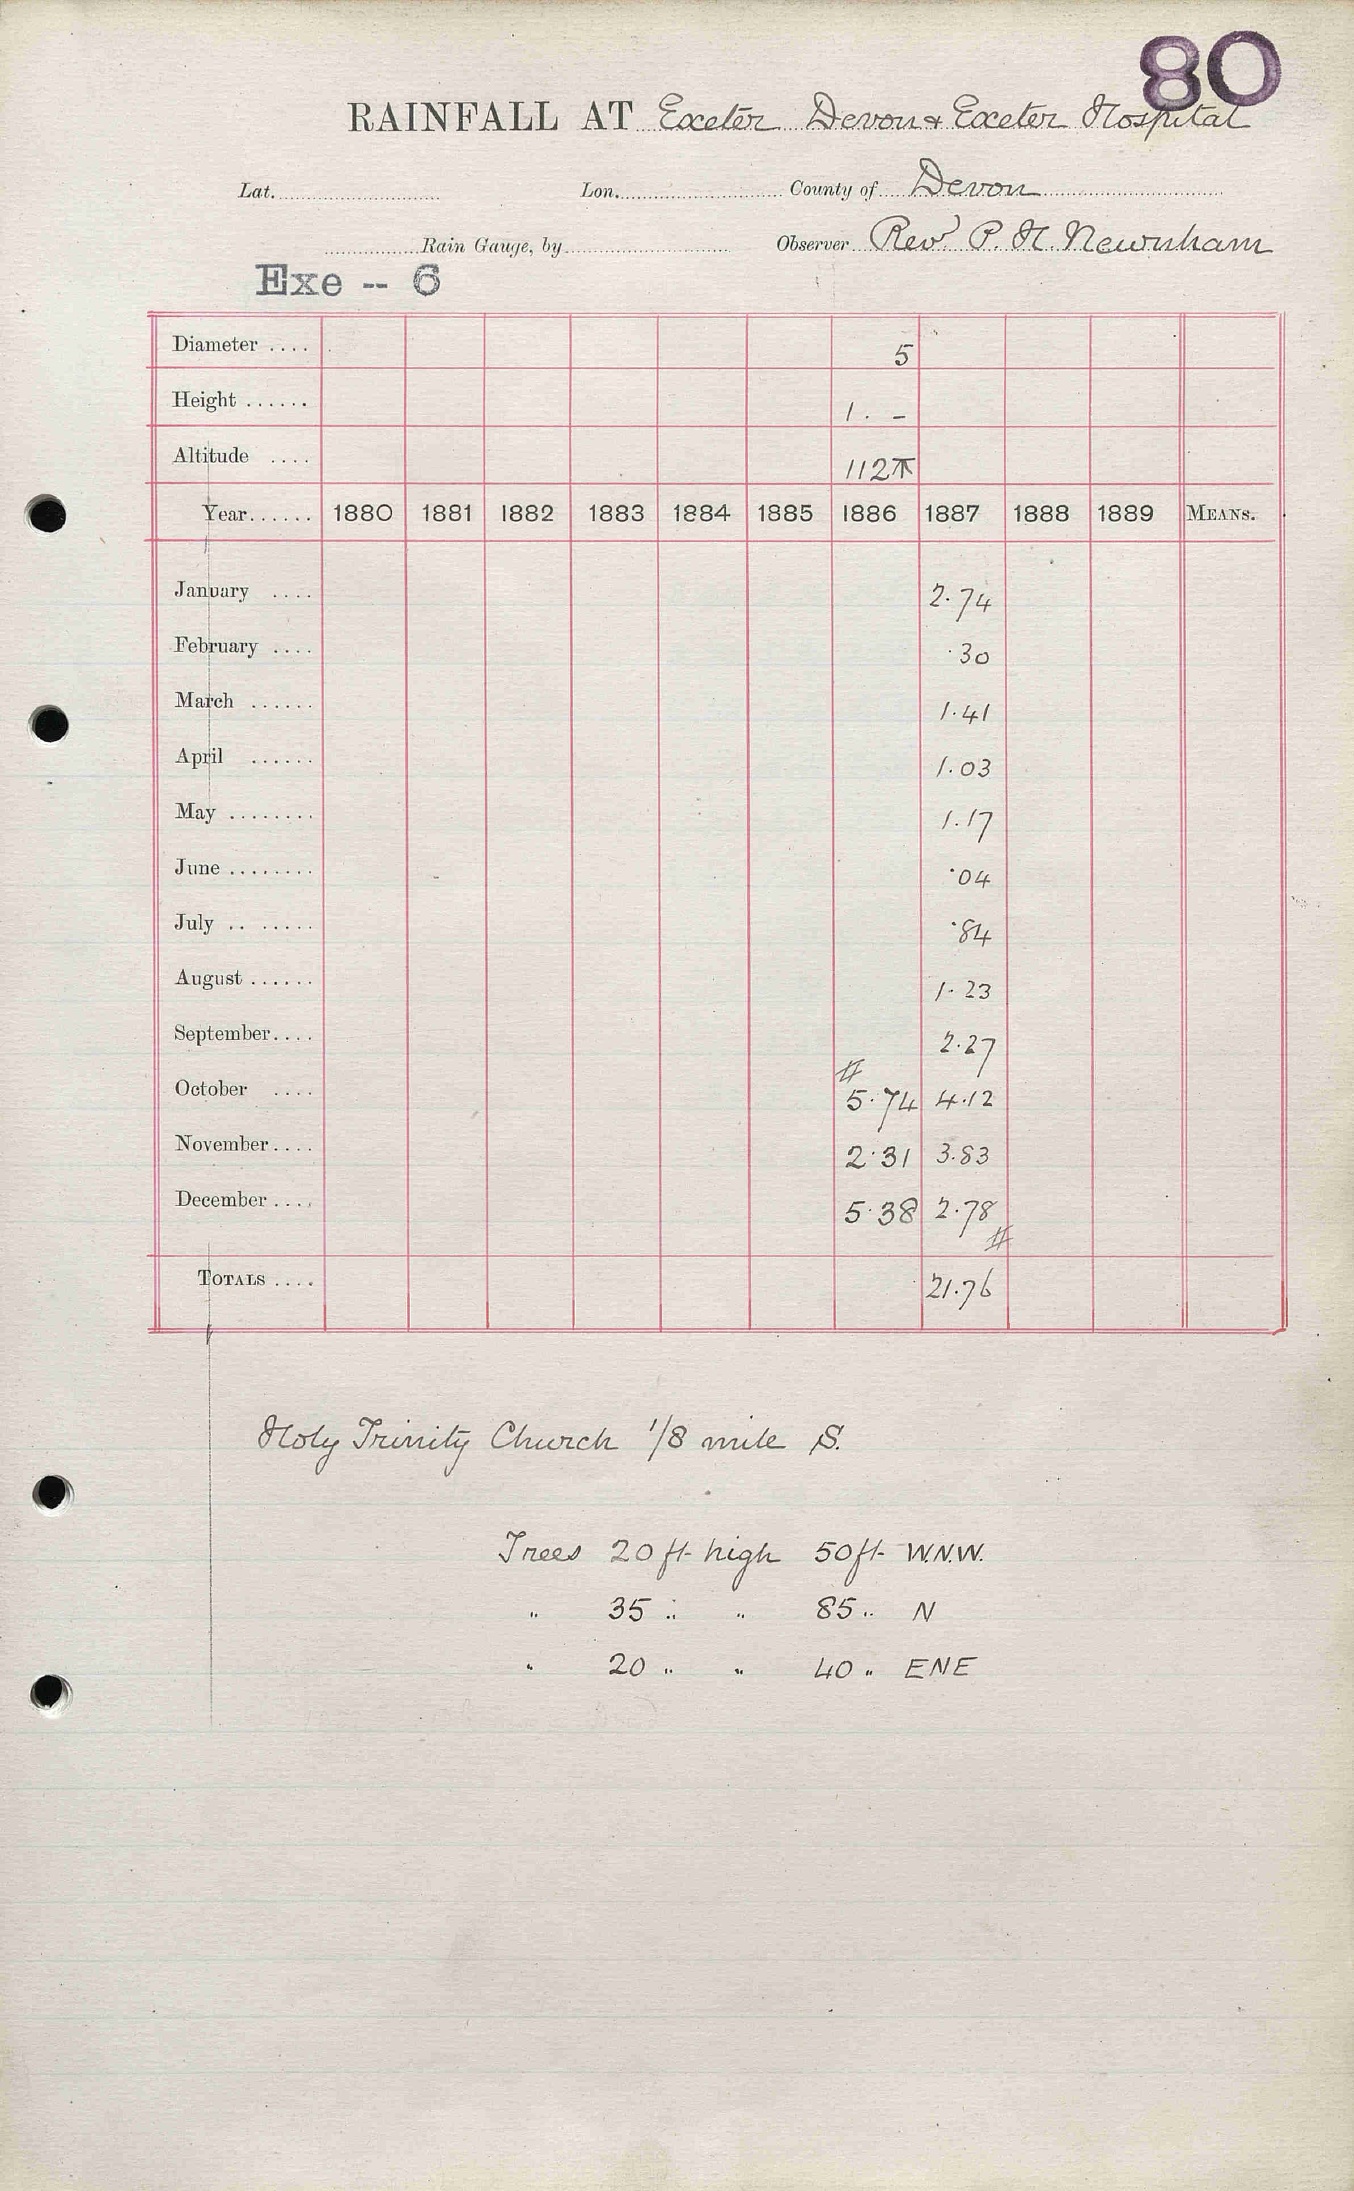 80
RAINFALL AT Exeter Devon & Exeter Hospital
Lat. Lon. County of Devon
Rain Gauge, by Observer Rev. P. H. Newnham
Exe -- 6
Diameter .... 5
Height ...... 1. -
Altitude .... 112
Year...... 1880 1881 1882 1883 1884 1885 1886 1887 1888 1889 MEANS.
January .... 2.74
February .... .30
March ...... 1.41
April ...... 1.03
May ........ 1.17
June ........ .04
July .. ..... .84
August ...... 1.23
September.... 2.27
October .... 5.74 4.12
November.... 2.31 3.83
December .... 5.38 2.78
TOTALS .... 21.76
Holy Trinity Church 1/8 mile S.
Trees 20 ft high 50 ft W.N.W.
" 35 " " 85 " N
" 20 " " 40 " ENE